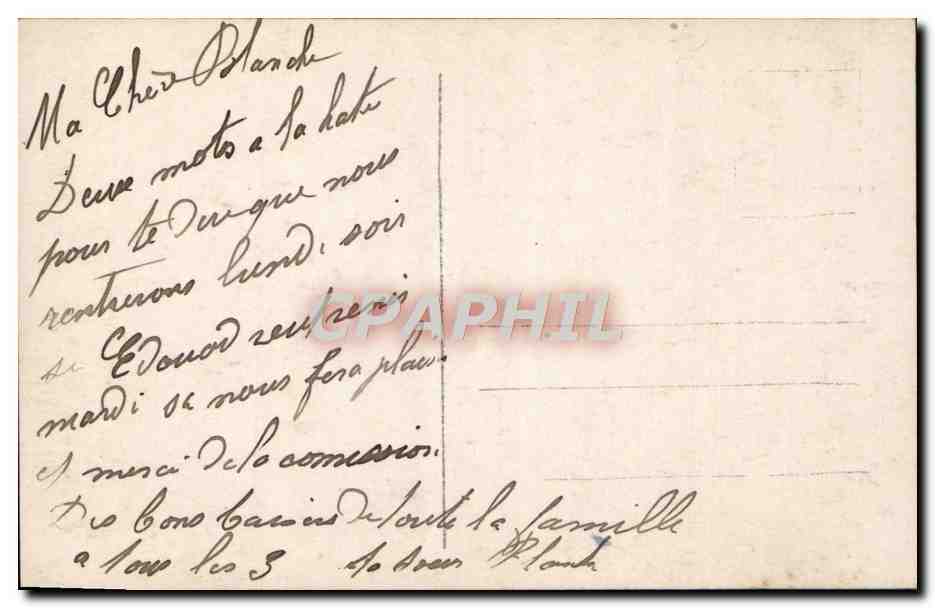 Ma Chère Blanche
Deux mots a la hate
pour te dire que nous
rentrerons lundi soir
si Edouard veut venir
mardi sa nous fera plaisir
et merci de la commission.
Des bons baisers de toute la famille
a tous les 3 ta soeur
CPAPHIL